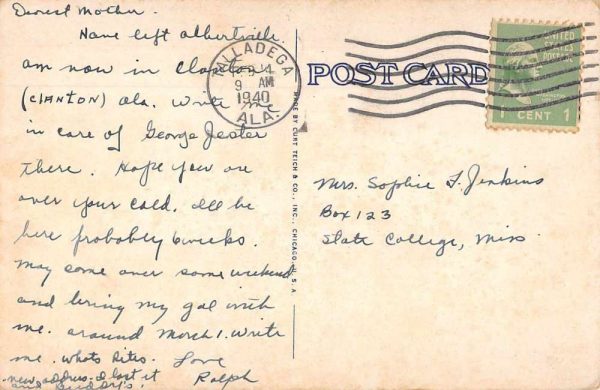 Dearest Mother.
Have left Albertville.
am now in Clanton
(CLANTON) Ala. Write me
in care of George Jester
there. Hope you are
over your cold. I'll be
here probably 6 weeks.
May come over some weekend
and bring my gal with
me. around March 1. Write
me. whats Rites. Love
new address. I lost it Ralph
and Buddy's!
TALLADEGA
9 AM
1940
ALA.
POST CARD
UNITED
STATES
POSTAGE
1 CENT 1
MADE BY CURT TEICH & CO., INC., CHICAGO, U.S.A.
Mrs. Sophie T. Jenkins
Box 123
State College, Miss